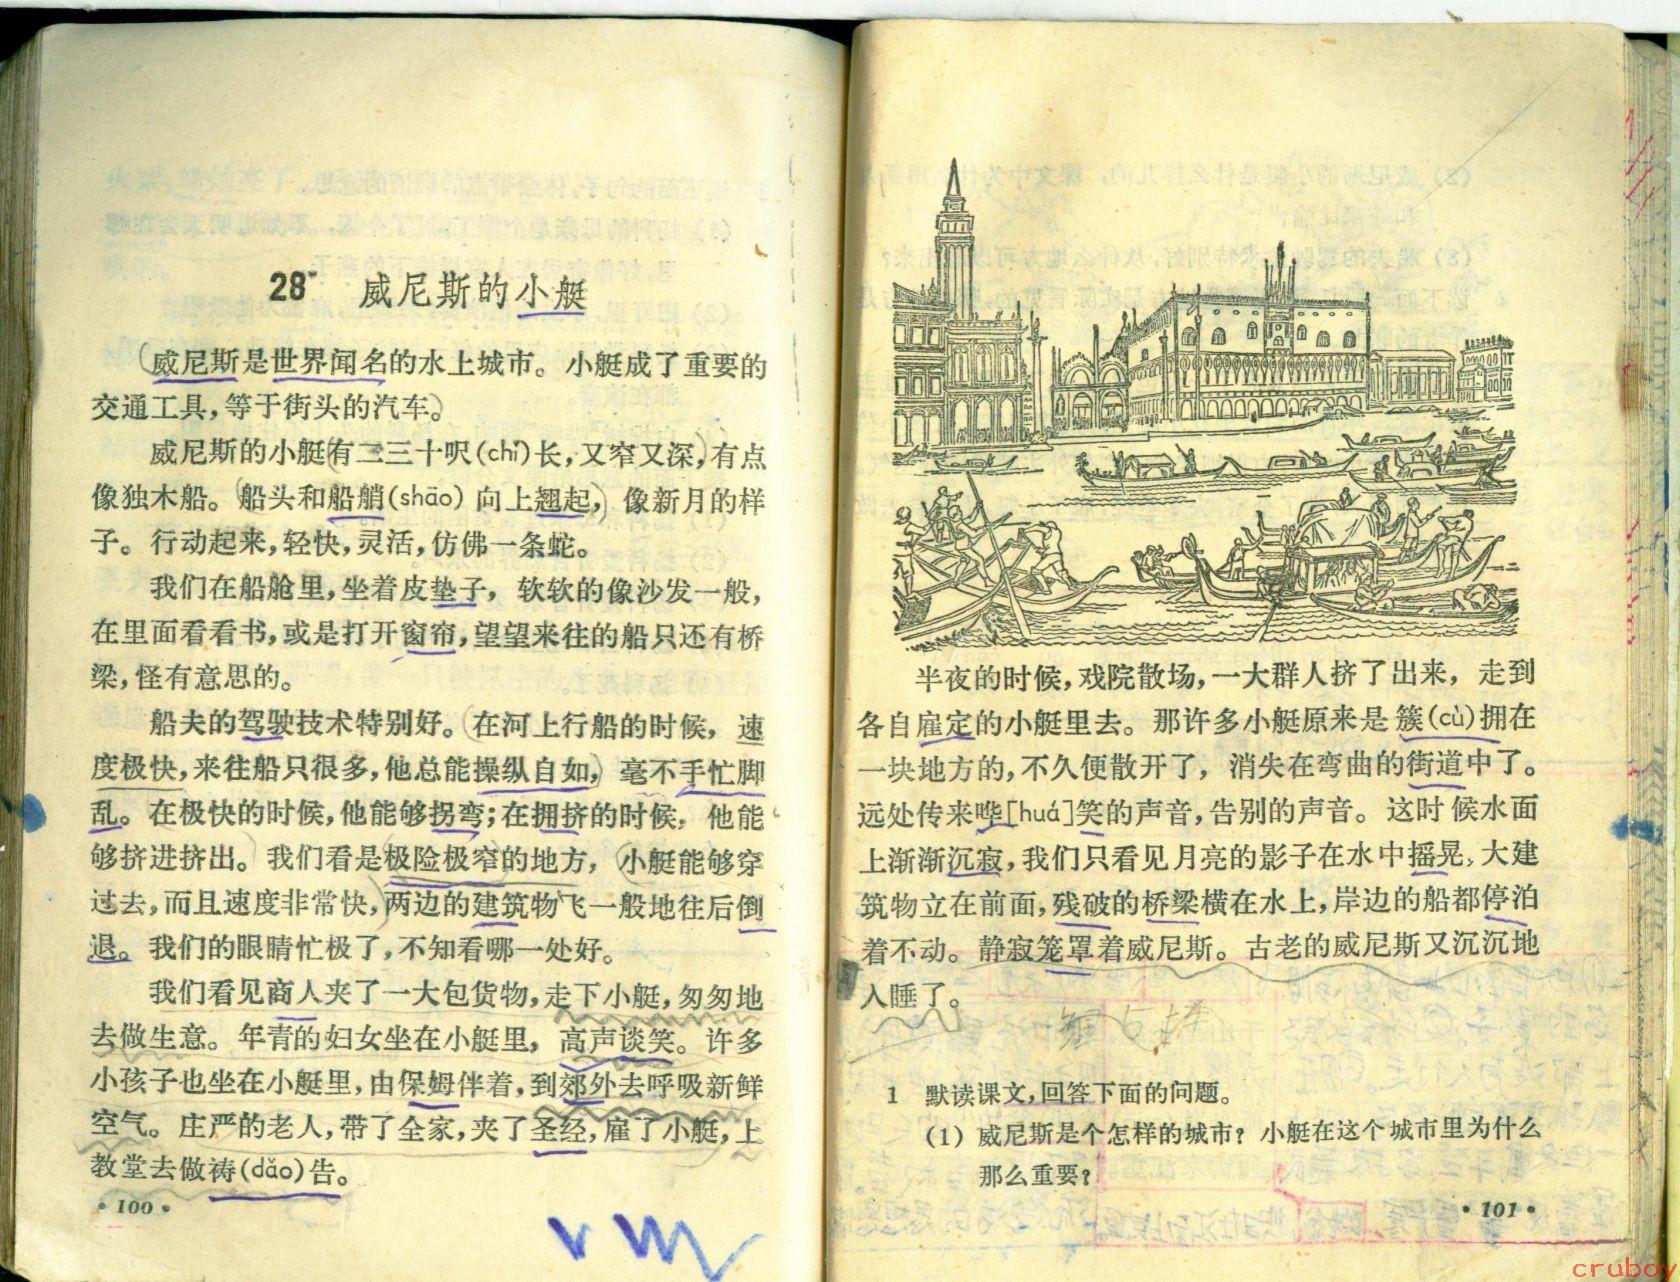 28* 威尼斯的小艇
威尼斯是世界闻名的水上城市。小艇成了重要的
交通工具,等于街头的汽车。
威尼斯的小艇有二三十呎(chǐ)长,又窄又深,有点
像独木船。船头和船艄(shāo)向上翘起,像新月的样
子。行动起来,轻快,灵活,仿佛一条蛇。
我们在船舱里,坐着皮垫子,软软的像沙发一般,
在里面看看书,或是打开窗帘,望望来往的船只还有桥
梁,怪有意思的。
船夫的驾驶技术特别好。在河上行船的时候,速
度极快,来往船只很多,他总能操纵自如,毫不手忙脚
乱。在极快的时候,他能够拐弯;在拥挤的时候,他能
够挤进挤出。我们看是极险极窄的地方,小艇能够穿
过去,而且速度非常快,两边的建筑物飞一般地往后倒
退。我们的眼睛忙极了,不知看哪一处好。
我们看见商人夹了一大包货物,走下小艇,匆匆地
去做生意。年青的妇女坐在小艇里,高声谈笑。许多
小孩子也坐在小艇里,由保姆伴着,到郊外去呼吸新鲜
空气。庄严的老人,带了全家,夹了圣经,雇了小艇,上
教堂去做祷(dǎo)告。
·100·
半夜的时候,戏院散场,一大群人挤了出来,走到
各自雇定的小艇里去。那许多小艇原来是簇(cù)拥在
一块地方的,不久便散开了,消失在弯曲的街道中了。
远处传来哗[huá]笑的声音,告别的声音。这时候水面
上渐渐沉寂,我们只看见月亮的影子在水中摇晃。大建
筑物立在前面,残破的桥梁横在水上,岸边的船都停泊
着不动。静寂笼罩着威尼斯。古老的威尼斯又沉沉地
入睡了。
1 默读课文,回答下面的问题。
(1) 威尼斯是个怎样的城市?小艇在这个城市里为什么
那么重要?
·101·
cruboy